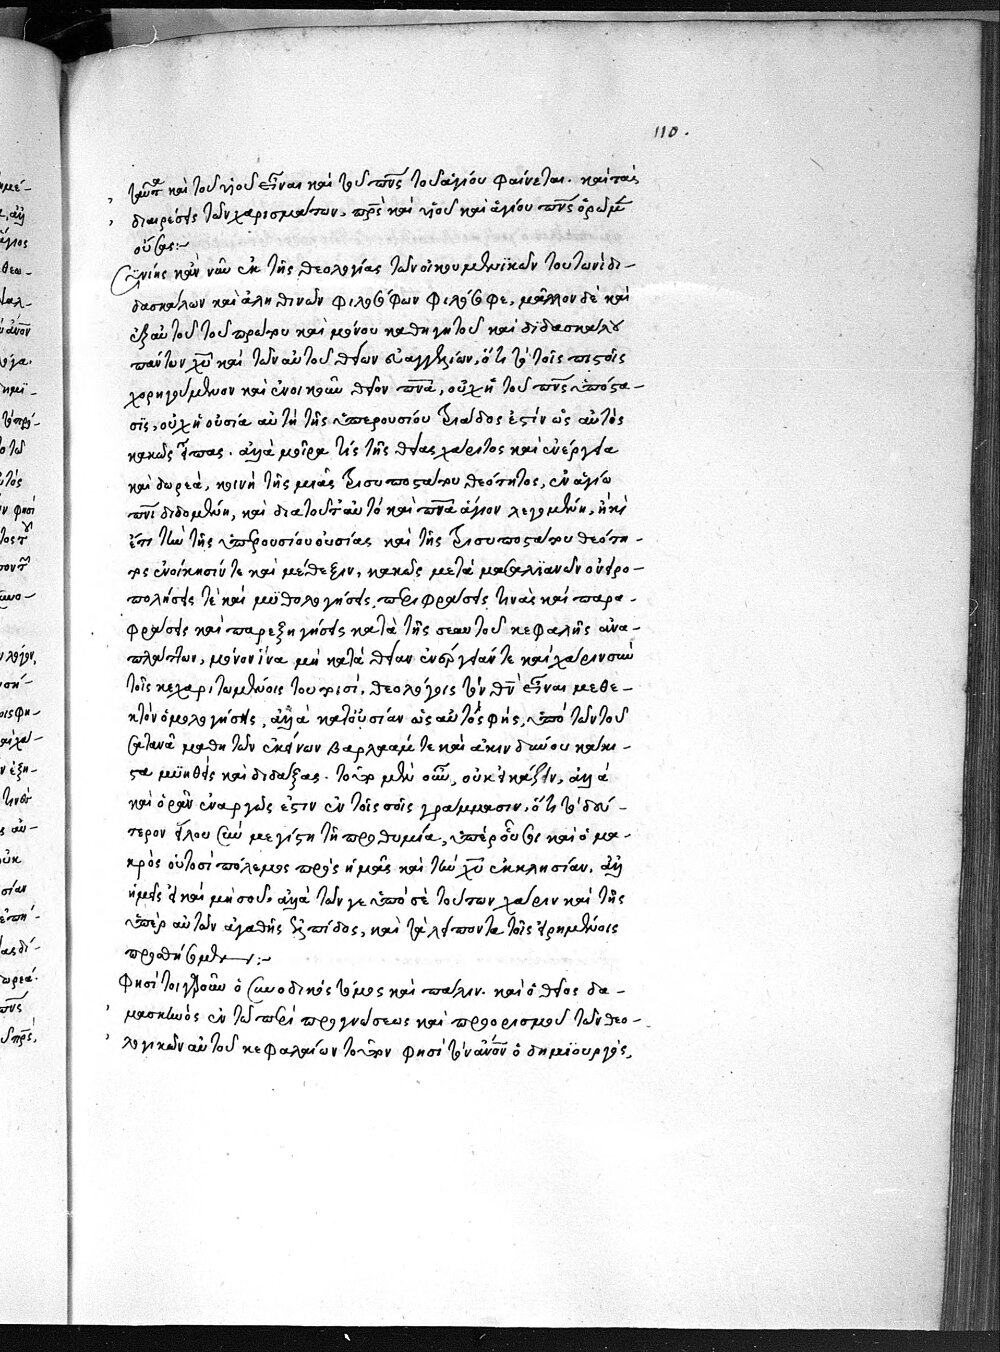 110.
ταῦτα καὶ τοῦ υἱοῦ εἶναι καὶ τοῦ πνς τοῦ ἁγίου φαίνεται. καὶ τὰς
διαιρέσεις τῶν χαρισμάτων, πρς καὶ υἱοῦ καὶ ἁγίου πνς ὁρῶμεν
οὔσας:-
Συνίης κἂν νῦν ἐκ τῆς θεολογίας τῶν οἰκουμενικῶν τουτωνὶ δι-
δασκάλων καὶ ἀληθινῶν φιλοσόφων φιλόσοφε, μᾶλλον δὲ καὶ
ἐξ αὐτοῦ τοῦ πρώτου καὶ μόνου καθηγητοῦ καὶ διδασκάλου
πάντων χυ καὶ τῶν αὐτοῦ θείων εὐαγγελίων, ὅτι τὸ τοῖς πιστοῖς
χορηγούμενον καὶ ἐνοικοῦν θεῖον πνα, οὐχ ἡ τοῦ πνς ὑπόστα-
σις, οὐχ ἡ οὐσία αὐτὴ τῆς ὑπερουσίου τριάδος ἐστὶν ὡς αὐτὸς
κακῶς εἶπας. ἀλλὰ μοῖρα τίς τῆς θείας χάριτος καὶ ἐνέργεια
καὶ δωρεά, κοινὴ τῆς μιᾶς τρισυποστάτου θεότητος, ἐν ἁγίω
πνι διδομένη, καὶ διατοῦτ' αὐτό καὶ πνα ἅγιον λεγομένη, ἢ καὶ
ἔτι τὴν τῆς ὑπερουσίου οὐσίας καὶ τῆς τρισυποστάτου θεότη-
τος ἐνοίκησίν τε καὶ μέθεξιν, κακῶς μετὰ μασαλιανῶν οὑτω-
πολήσεις τὲ καὶ μυθολογήσεις, περιφράσεις τινὰς καὶ παρα-
φράσεις καὶ παρεξηγήσεις κατὰ τῆς σεαυτοῦ κεφαλῆς ἀνα-
πλάττων, μόνον ἵνα μὴ κατὰ θείαν ἐνέργειάν τε καὶ χάριν σὺν
τοῖς κεχαριτωμένοις τουτοισὶ θεολόγοις τὸν θν εἶναι μεθε-
κτὸν ὁμολογήσης, ἀλλὰ κατ' οὐσίαν ὡς αὐτὸς φής, ὑπὸ τῶν τοῦ
σατανᾶ μαθητῶν ἐκείνων βαρλαάμ τε καὶ ἀκινδύνου κάκι-
στα μυηθεὶς καὶ διδάξας. τὸ γὰρ μὲν οὖν, οὐκ εἰκάζειν, ἀλλὰ
καὶ ὁρᾶν ἐναργῶς ἐστιν ἐν τοῖς σοῖς γράμμασιν, ὅτι τὸ δεύ-
τερον τέλος σὺν μεγίστη τῆ προθυμία, ὑπὲρ οὗ σοι καὶ ὁ μα-
κρὸς οὑτοσὶ πόλεμος πρὸς ἡμᾶς καὶ τὴν χυ ἐκκλησίαν. ἀλλ'
ἡμεῖς εἰ καὶ μὴ σοῦ, ἀλλὰ τῶν γε ὑπὸ σὲ τούτων χάριν καὶ τῆς
ὑπὲρ αὐτῶν ἀγαθῆς ἐλπίδος, καὶ τὰ λείποντα τοῖς εἰρημένοις
προσθήσομεν:-
Φησὶ τοιγαροῦν ὁ συνοδικὸς τόμος καὶ πάλιν. καὶ ὁ θεῖος δα-
μασκηνὸς ἐν τῶ περὶ προγνώσεως καὶ προορισμοῦ τῶν θεο-
λογικῶν αὐτοῦ κεφαλαίων τὸν φησὶ τὸν ανον ὁ δημιουργὸς,